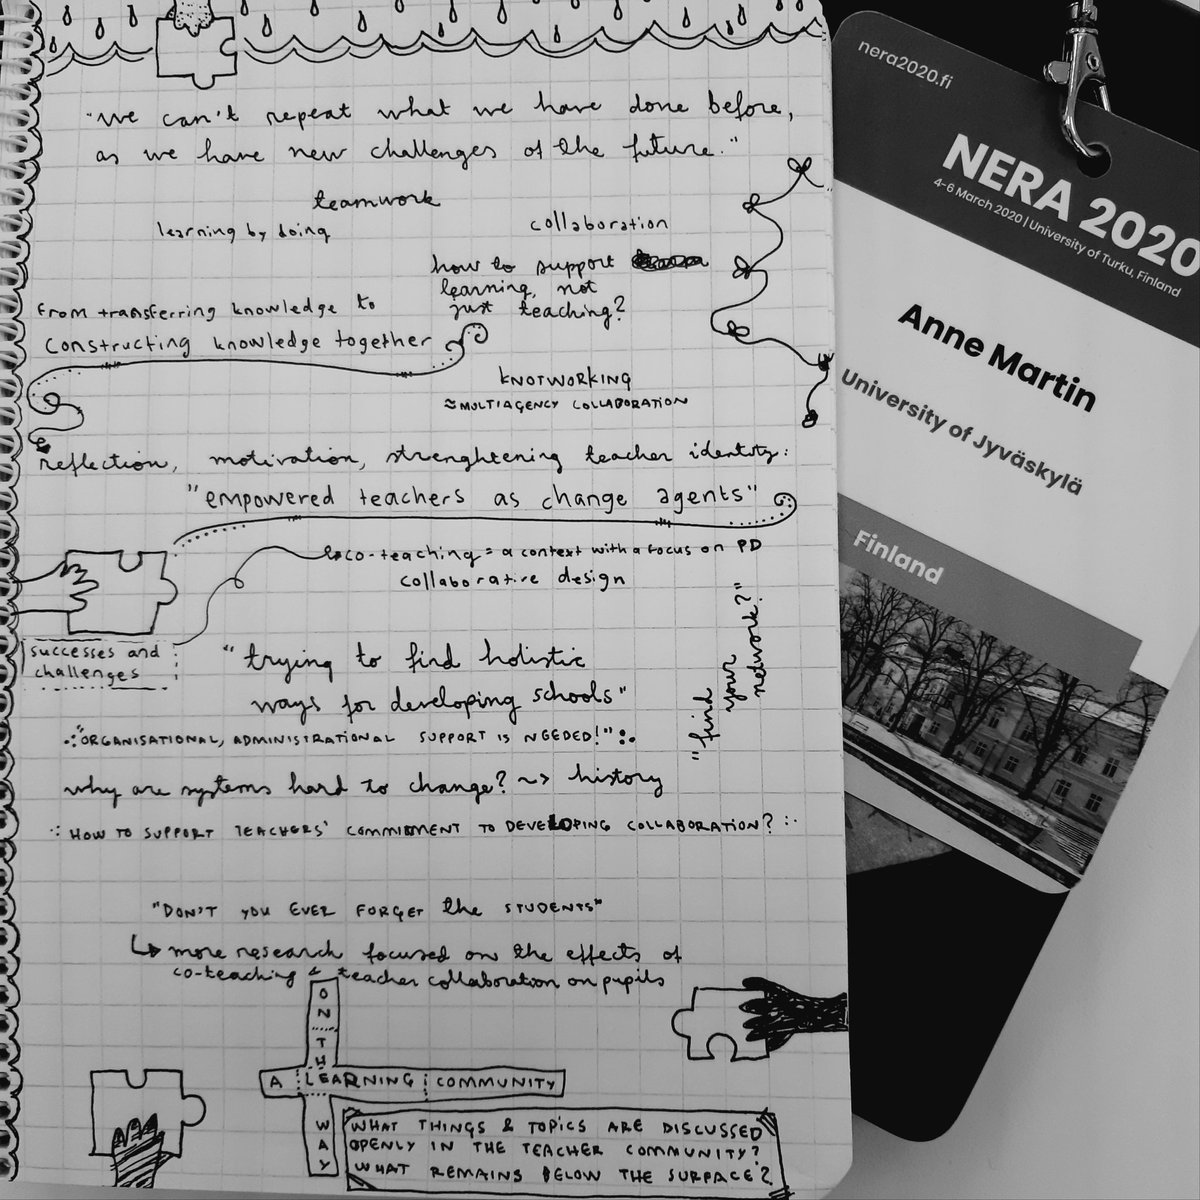 "we can't repeat what we have done before,
as we have new challenges of the future."
teamwork
learning by doing
collaboration
how to support
learning, not
just teaching?
From transferring knowledge to
constructing knowledge together
KNOTWORKING
≈ MULTIAGENCY COLLABORATION
reflection, motivation, strenghtening teacher identity:
"empowered teachers as change agents"
co-teaching = a context with a focus on PD
collaborative design
successes and
challenges
"trying to find holistic
ways for developing schools"
"find
your
network?"
"ORGANISATIONAL, ADMINISTRATIONAL SUPPORT IS NEEDED!"
why are systems hard to change? ~> history
HOW TO SUPPORT TEACHERS' COMMITMENT TO DEVELOPING COLLABORATION?
"DON'T YOU EVER FORGET the STUDENTS"
↳ more research focused on the effects of
co-teaching & teacher collaboration on pupils
ON THE WAY
A LEARNING COMMUNITY
WHAT THINGS & TOPICS ARE DISCUSSED
OPENLY IN THE TEACHER COMMUNITY?
WHAT REMAINS BELOW THE SURFACE?
nera2020.fi
NERA 2020
4-6 March 2020 | University of Turku, Finland
Anne Martin
University of Jyväskylä
Finland